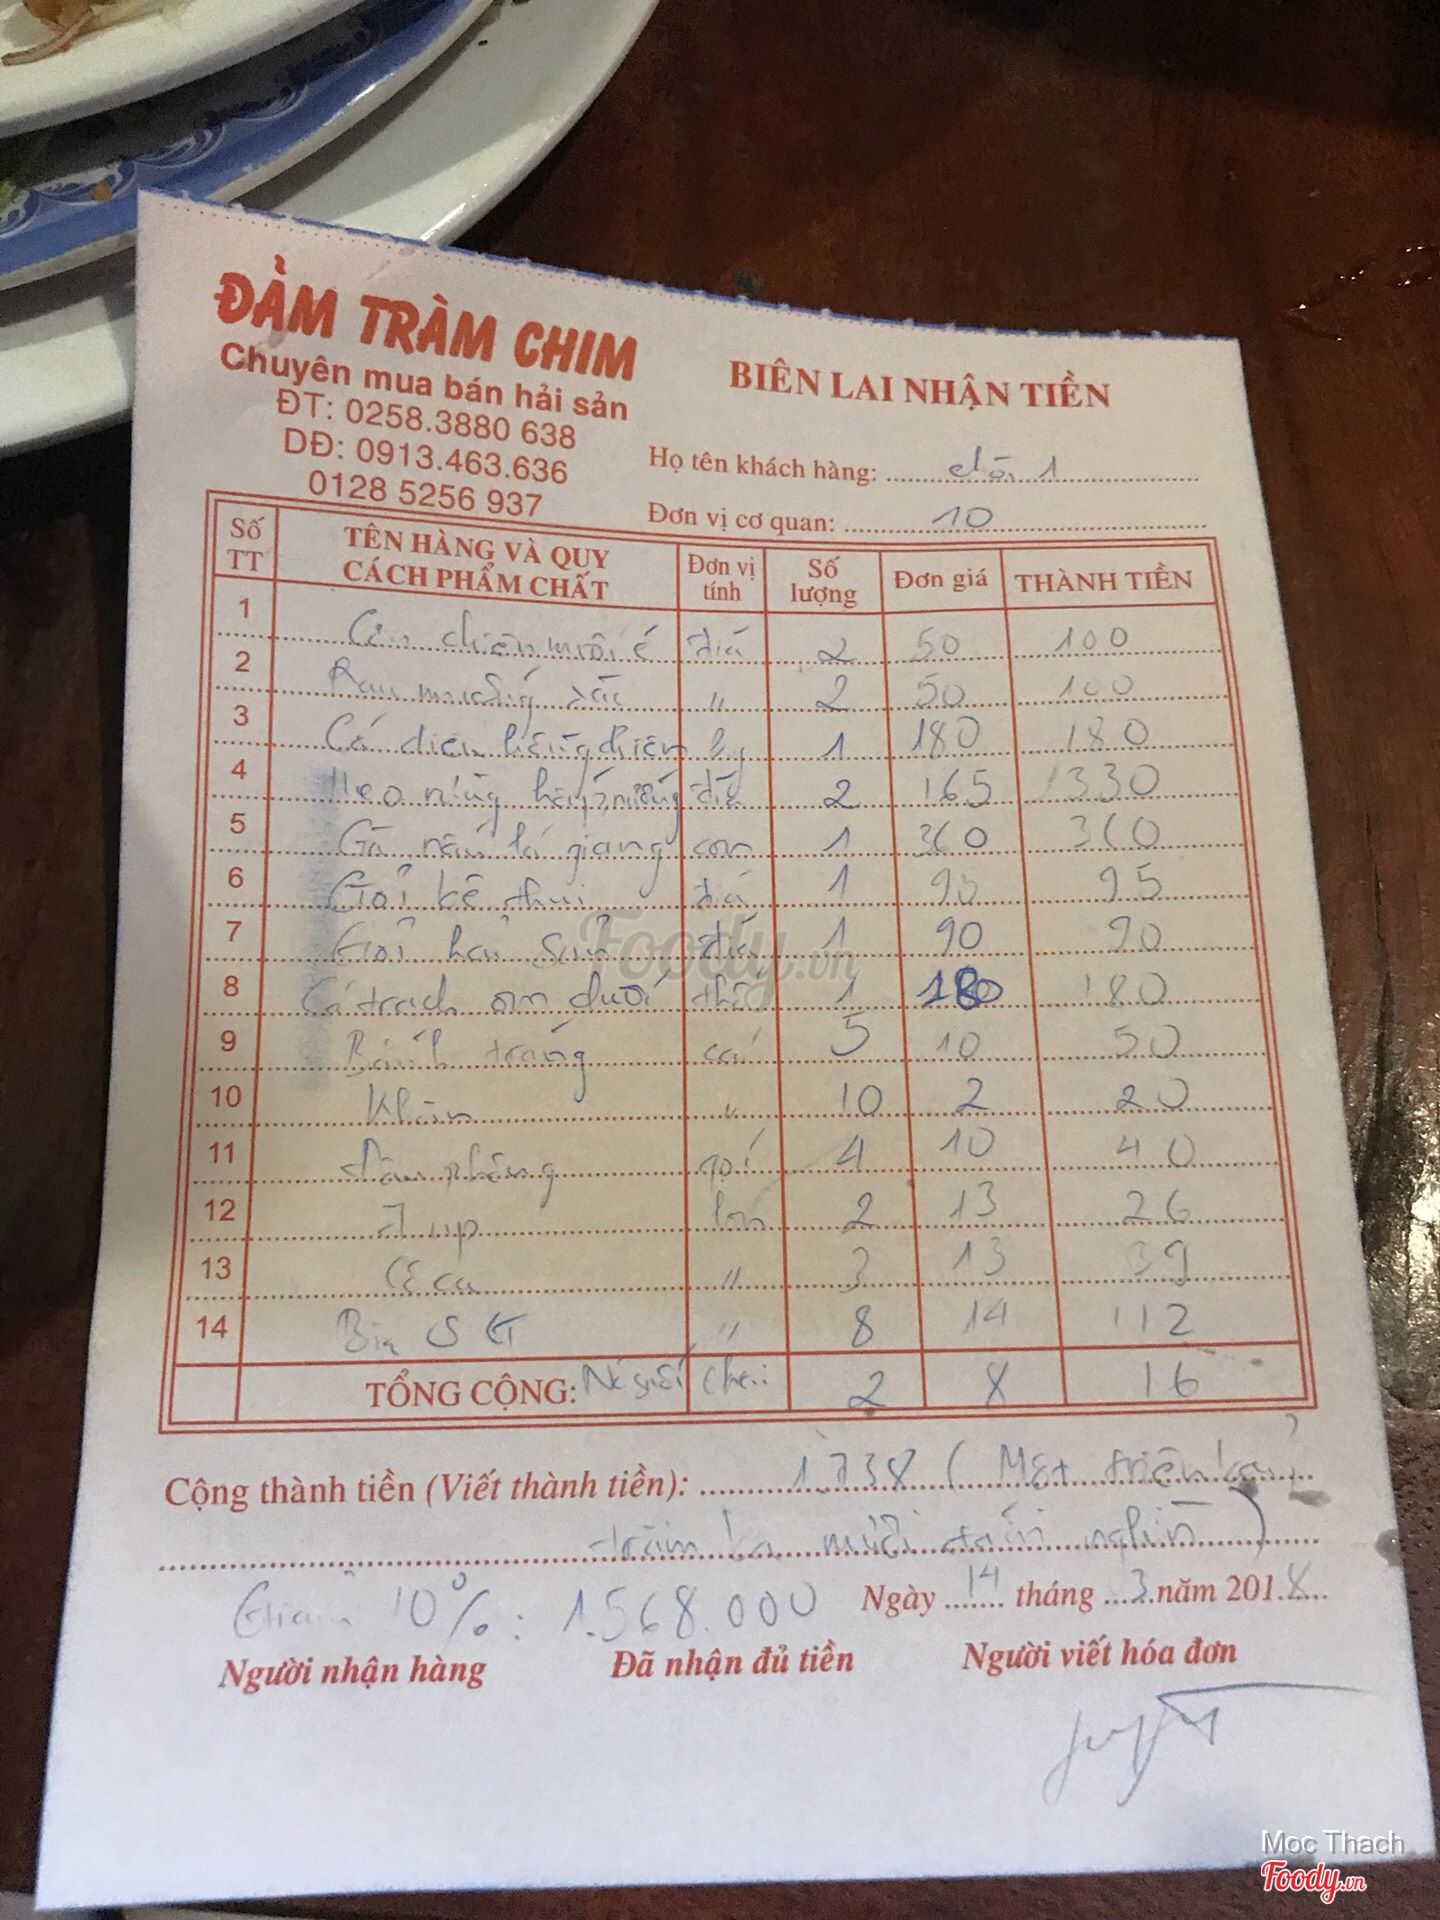 ĐẢM TRÀM CHIM
Chuyên mua bán hải sản
ĐT: 0258.3880 638
DĐ: 0913.463.636
0128 5256 937
BIÊN LAI NHẬN TIỀN
Họ tên khách hàng: 1
Đơn vị cơ quan: 10
Số TT TÊN HÀNG VÀ QUY CÁCH PHẨM CHẤT Đơn vị tính Số lượng Đơn giá THÀNH TIỀN
1 chiên muối é 2 50 100
2 Rau muống xào " 2 50 100
3 Cá diêu hồng chiên 1 180 180
4 Heo rừng nướng 2 165 330
5 Gà nấu lá giang con 1 360 360
6 Gỏi 1 95 95
7 Gỏi hải sản 1 90 90
8 1 180 180
9 Bánh tráng cái 5 10 50
10 Khăn " 10 2 20
11 đậu phộng gói 4 10 40
12 7 up lon 2 13 26
13 Cô ca " 3 13 39
14 Bia SG " 8 14 112
TỔNG CỘNG: Nc suối chai 2 8 16
Cộng thành tiền (Viết thành tiền): 1.738 ( Một triệu bảy
trăm ba mươi tám nghìn )
Giảm 10%: 1.568.000
Ngày 14 tháng 3 năm 2018
Người nhận hàng Đã nhận đủ tiền Người viết hóa đơn
Foody.vn
Moc Thach
Foody.vn